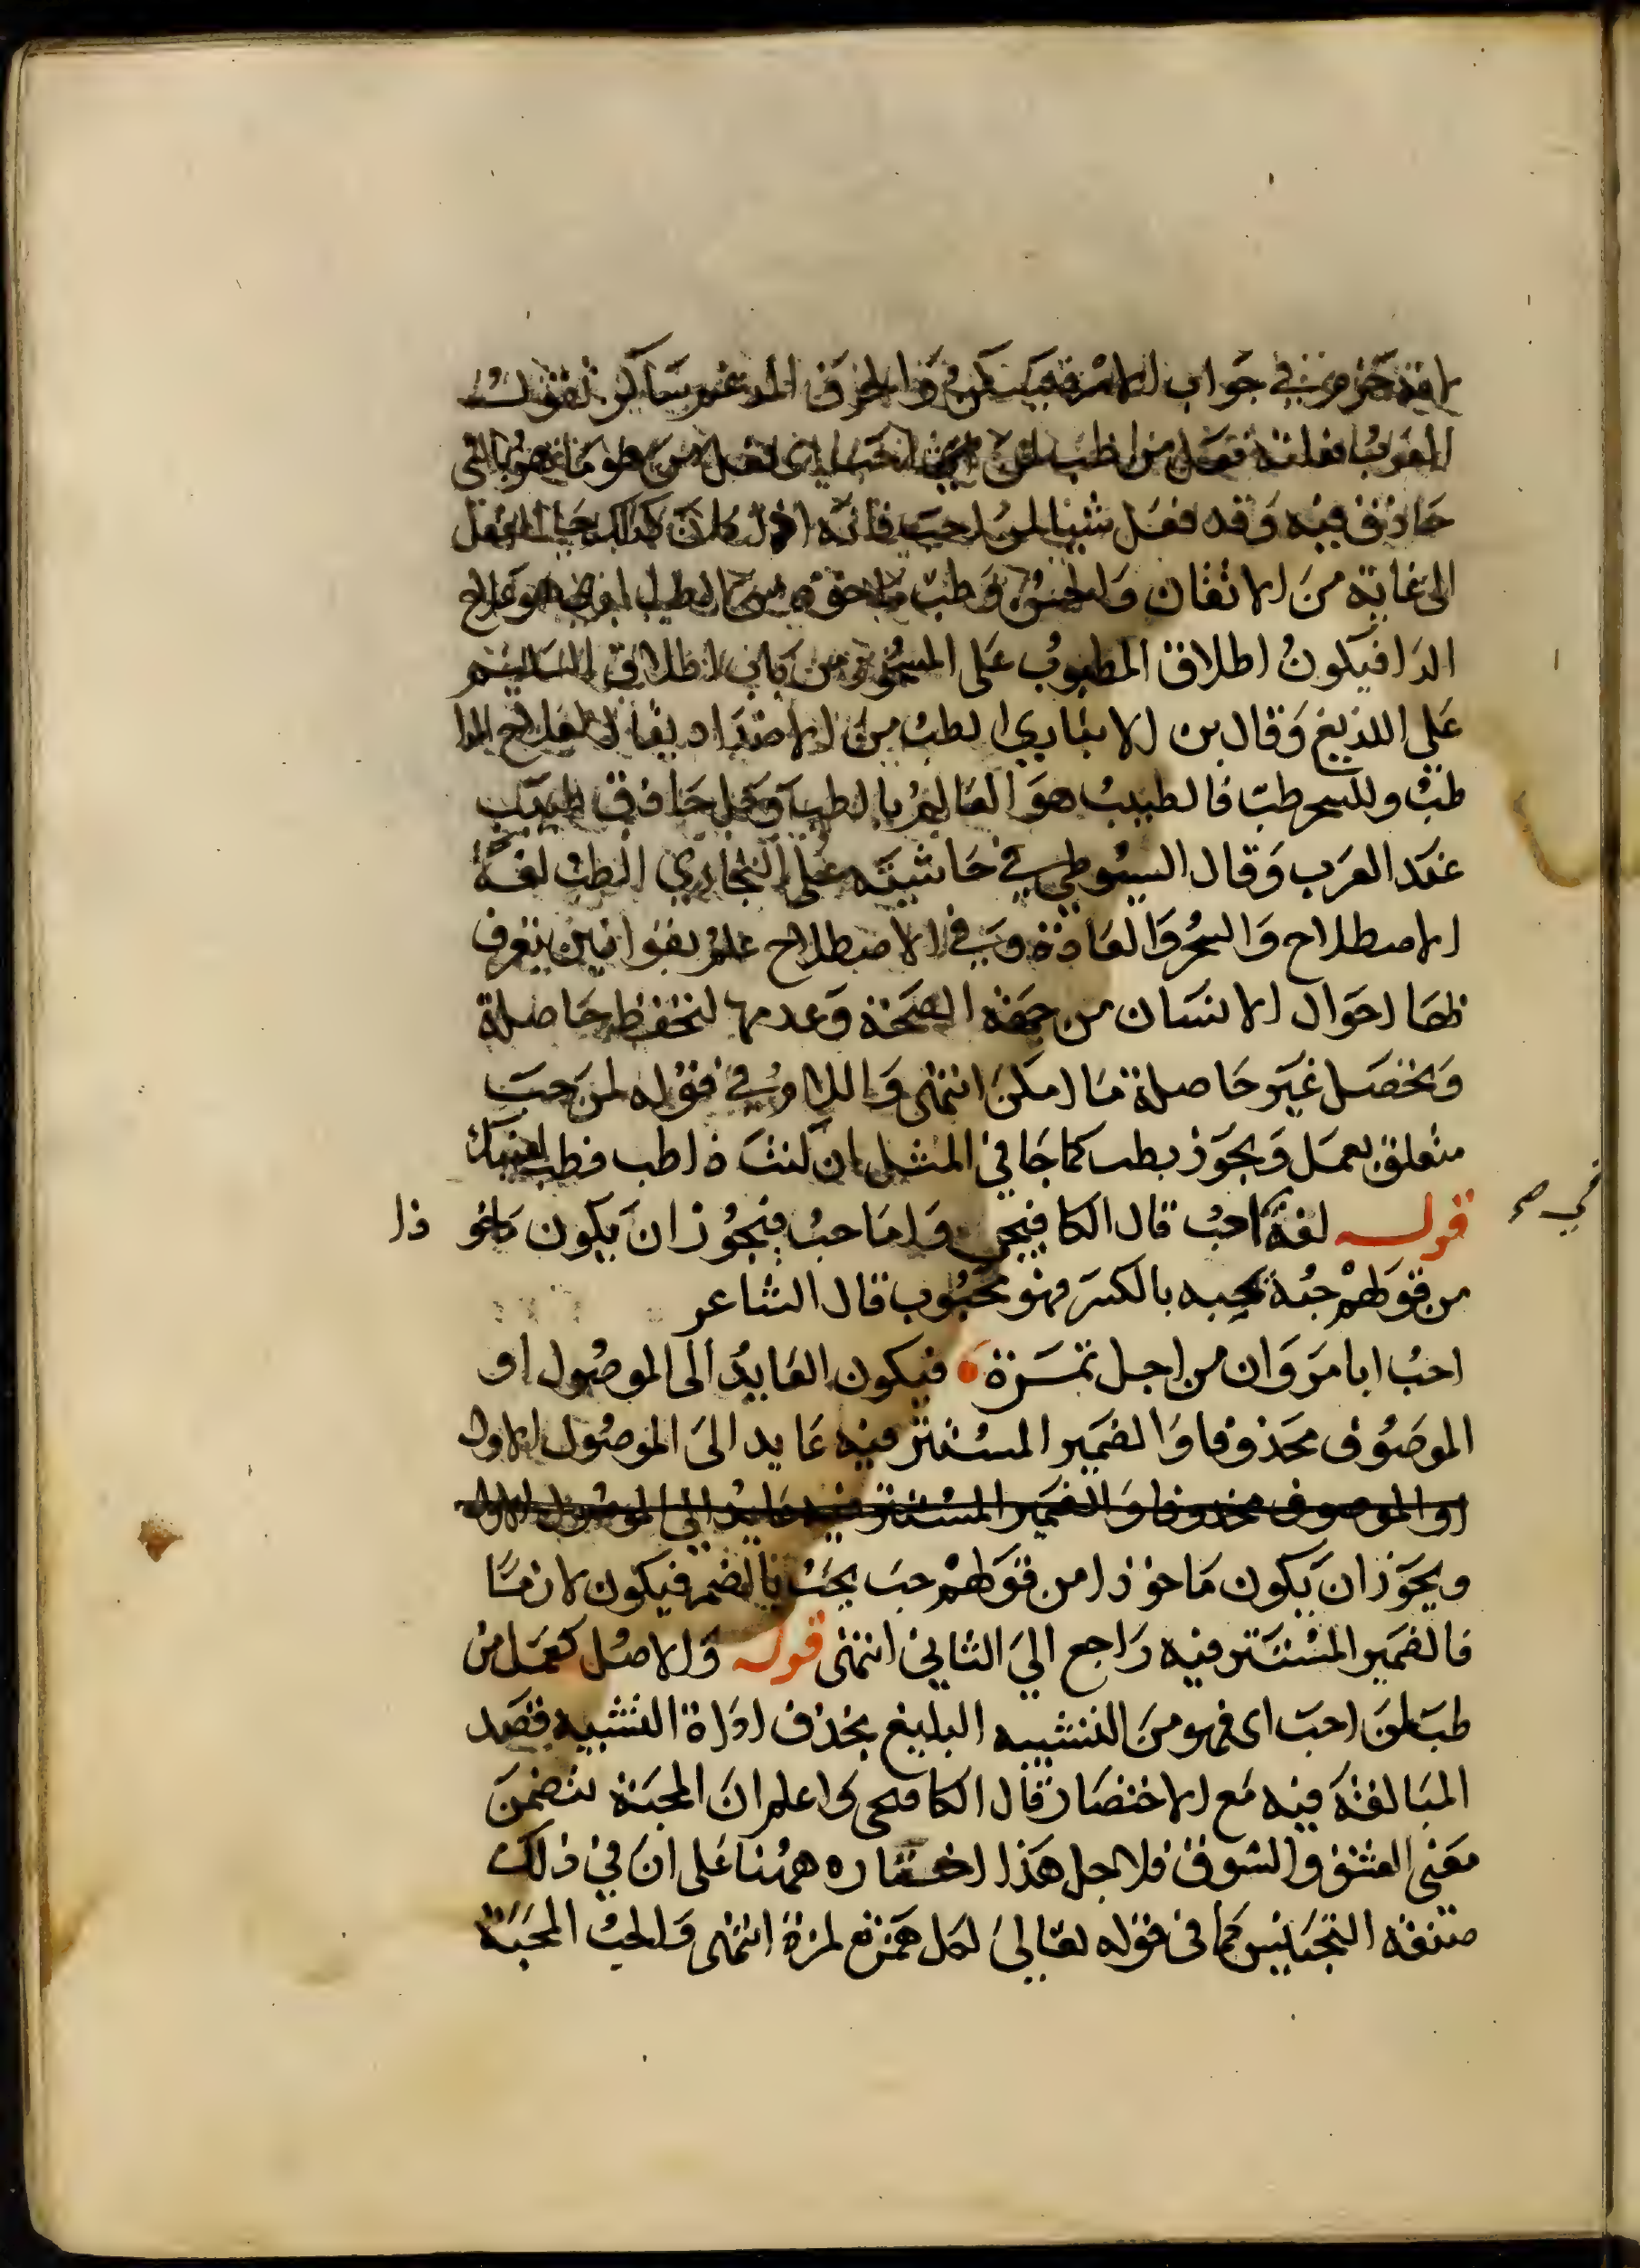 في جواب الامر والحرف المدغم ساكن تقول
العرب فعلته فعل من طب لمن حب اي فعل من
حاذق فيه وقد فعل شيئا لمن احب فانه اذا كان كذلك الفعل
الى غاية من الاتقان والحسن وطب ماخوذ من الطب ايضا وهو علاج
الدا فيكون اطلاق المطبوب على المسحور من باب اطلاق السليم
على اللديغ وقال بن الانباري الطب من الاضداد يقال لعلاج الدا
طب وللسحر طب فالطبيب هو العالم بالطب وكل حاذق طبيب
عند العرب وقال السيوطي في حاشيته على البخاري الطب لغة
الاصطلاح والسحر والعادة وفي الاصطلاح علم بقوانين يتعرف
بها احوال الانسان من جهة الصحة وعدمها لتحفظ حاصلة
وتحصل غير حاصلة ما امكن انتهى واللام في قوله لمن حب
متعلق بعمل ويجوز بطب كما جا في المثل ان كنت ذا طب فطب لعينيك
قوله لغة احب قال الكافيجي واما حب فيجوز ان يكون ماخو ذا
في صح
من قولهم حبه يحبه بالكسر فهو محبوب قال الشاعر
احب ابا مروان من اجل تمرة فيكون العايد الى الموصول او
الموصوف محذوفا والضمير المستتر فيه عايد الى الموصول الاول
او الموصوف محذوفا والضمير المستتر فيه عايد الى الموصول الاول
ويجوز ان يكون ماخوذا من قولهم حب يحب بالضم فيكون لازما
فالضمير المستتر فيه راجع الي الثاني انتهى قوله والاصل كعمل من
طب لمن احب اى فهو من التشبيه البليغ بحذف اداة التشبيه بقصد
المبالغة فيه مع الاختصار قال الكافيجي واعلم ان المحبة تتضمن
معنى العشق والشوق فلاجل هذا اختاره ههنا على ان في ذلك
صنعة التجنيس كما في قوله تعالى لكل همزة لمزة انتهى والحب المحبة